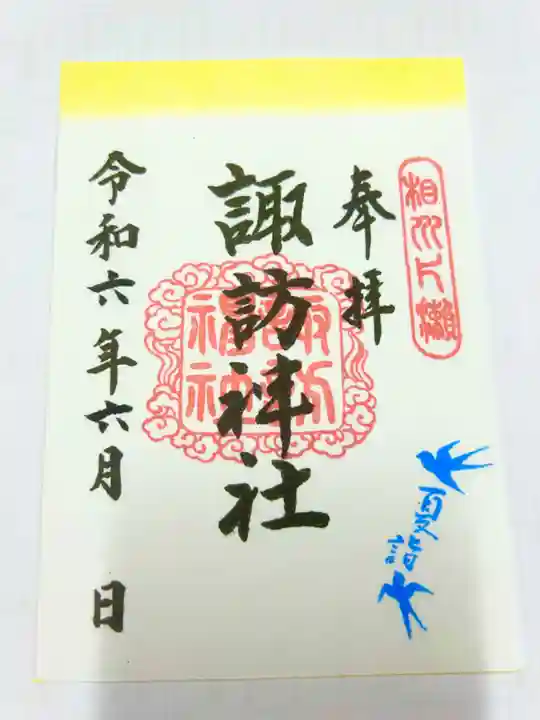 相州片瀬
奉拝
諏訪神社
諏訪神社
令和六年六月 日
夏詣